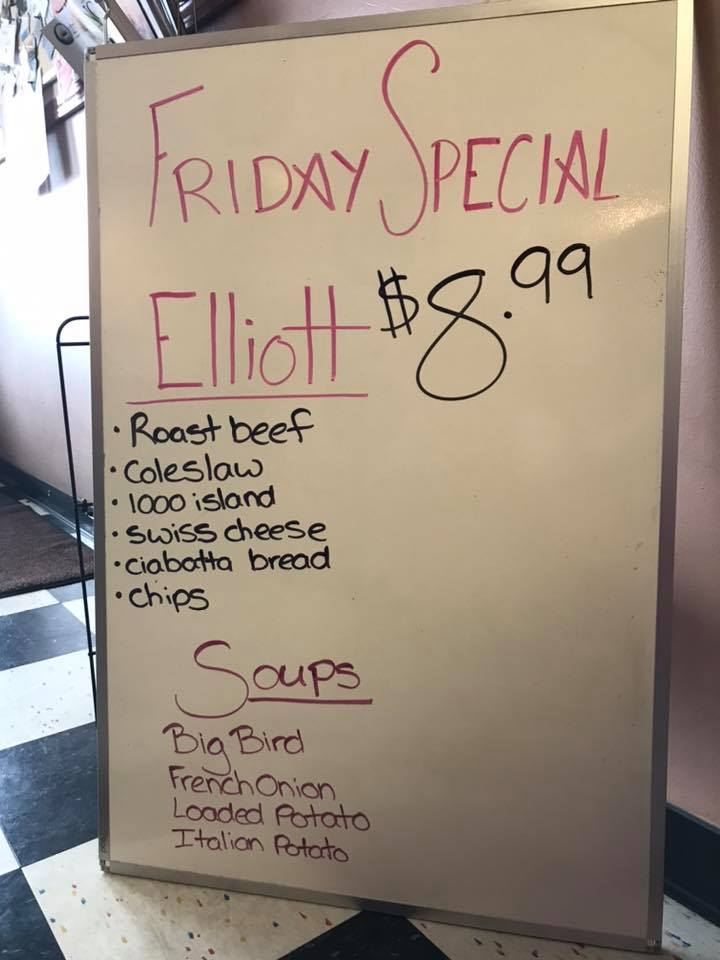 FRIDAY SPECIAL
Elliott $8.99
· Roast beef
· Coleslaw
· 1000 island
· swiss cheese
· ciabatta bread
· chips
Soups
Big Bird
French Onion
Loaded Potato
Italian Potato